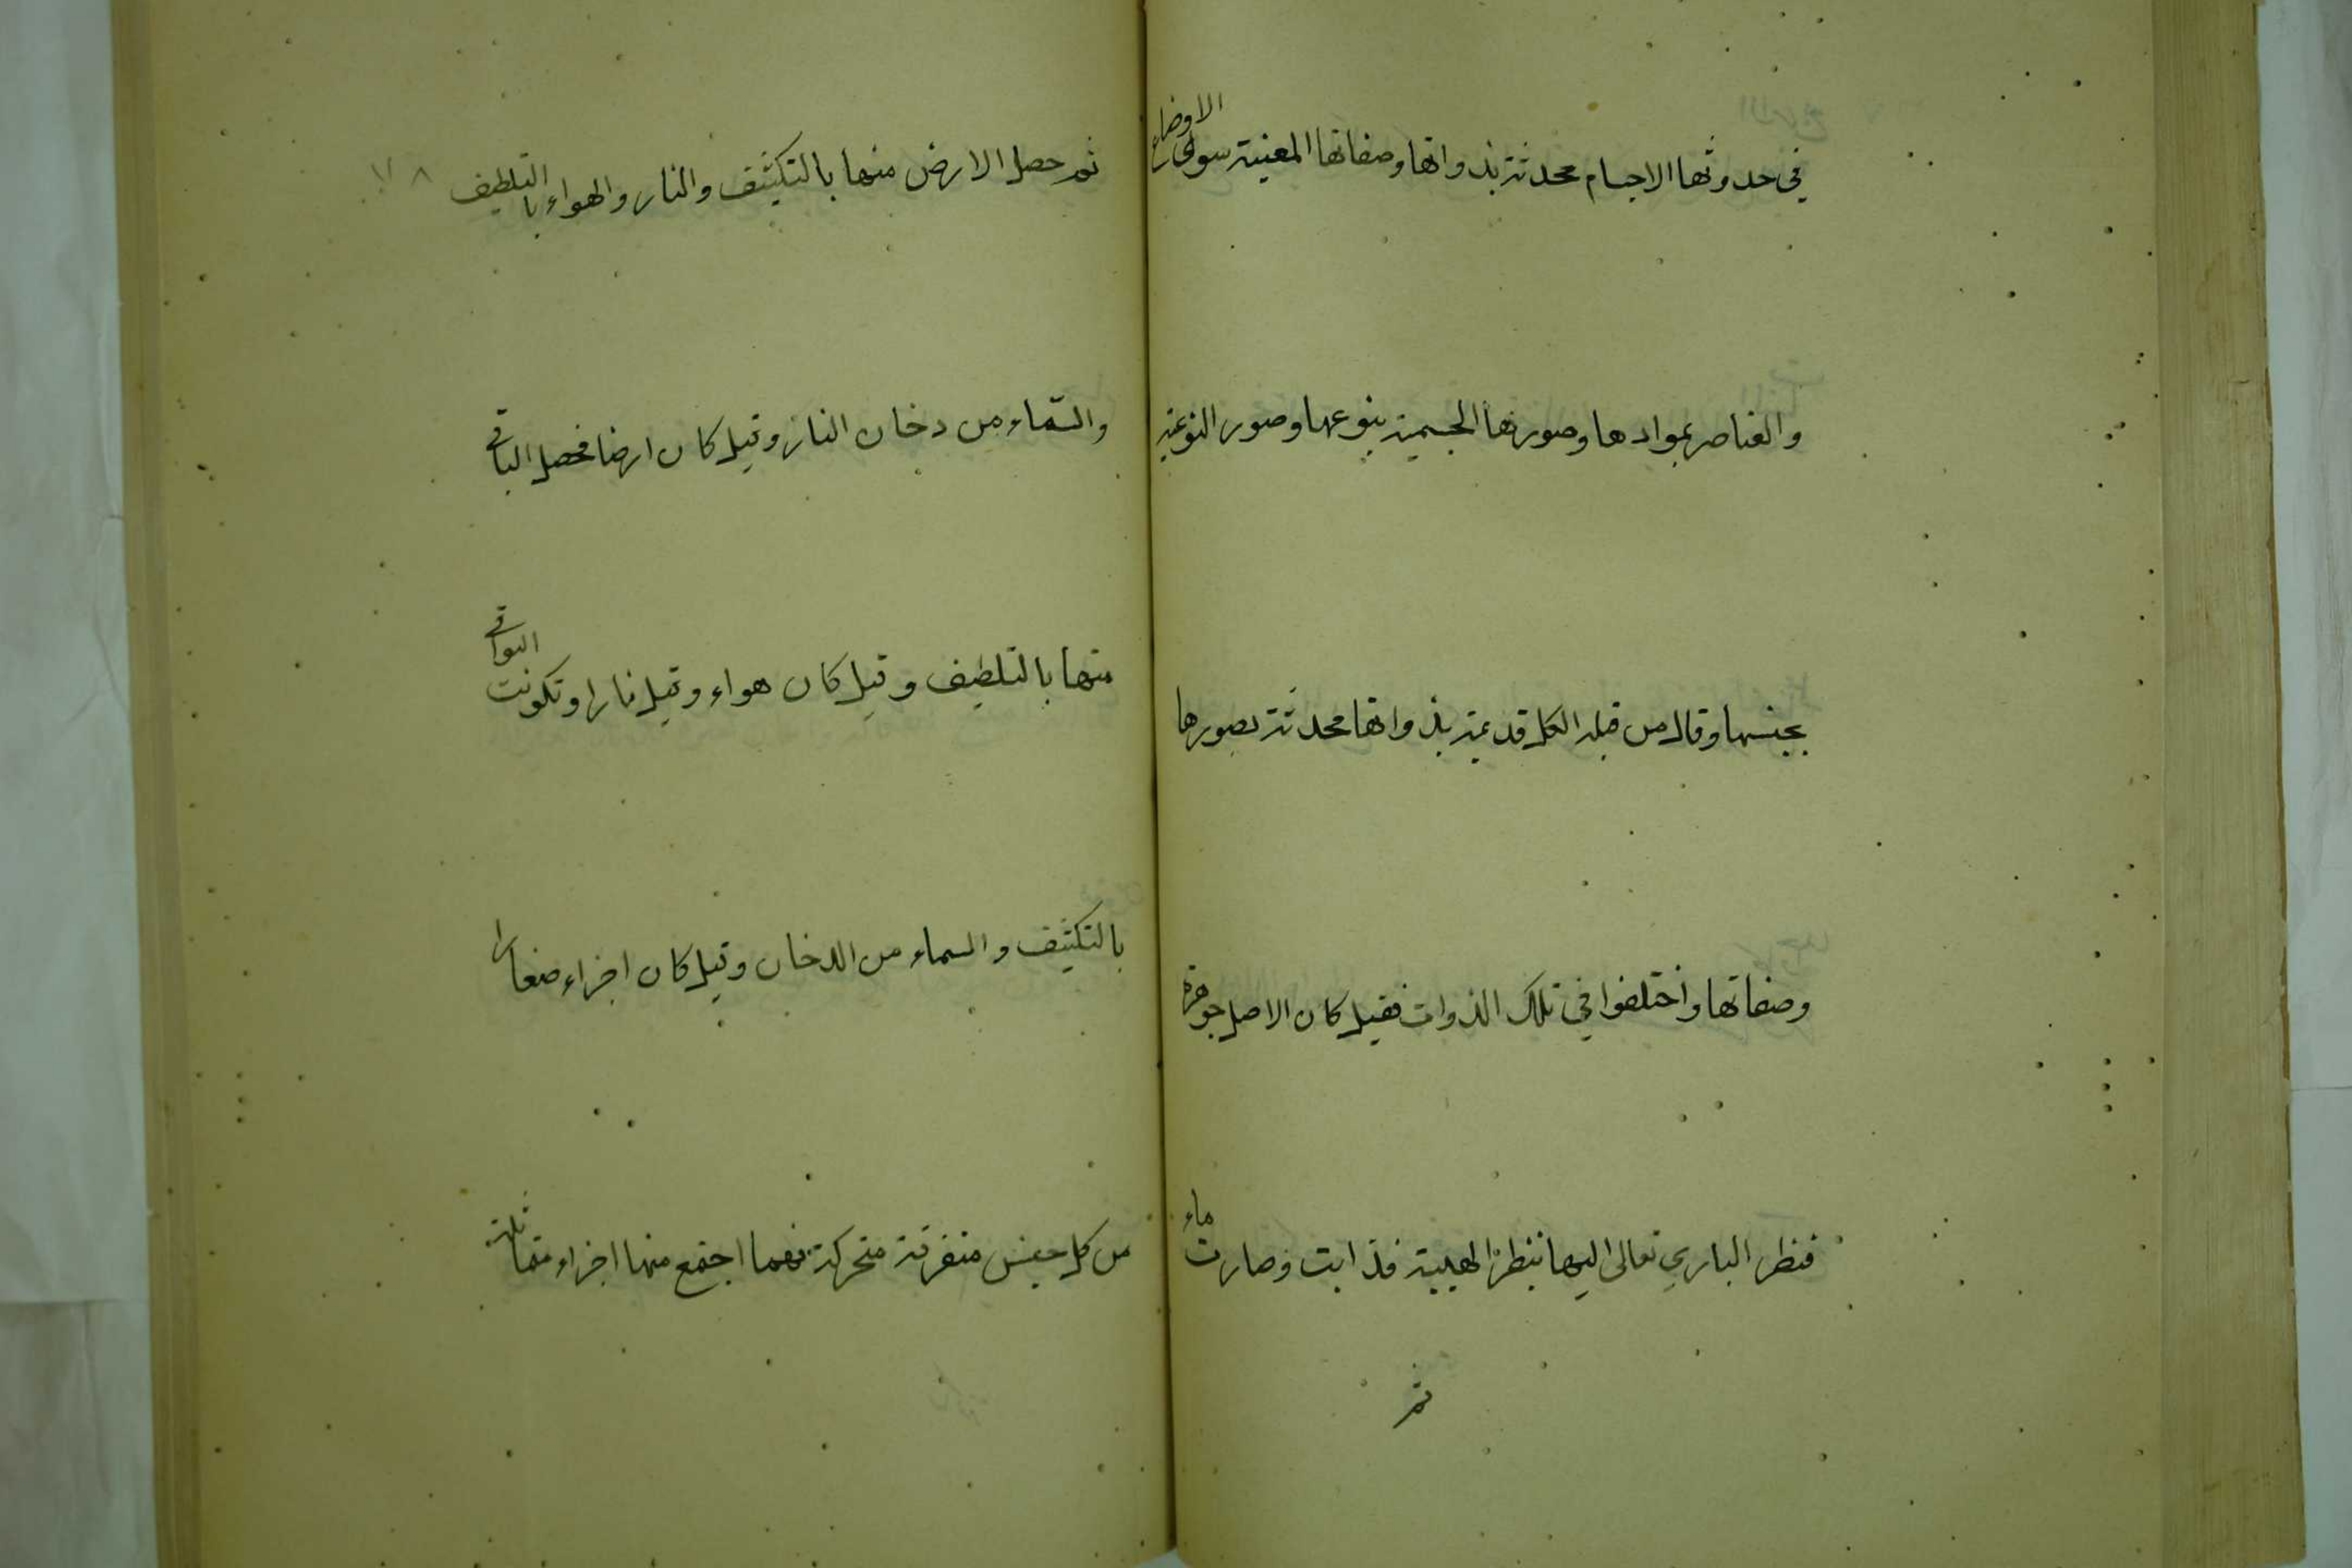 في حدوثها الاجسام محدثة بذواتها وصفاتها المعنية سوى الاوضاع
والعناصر بموادها وصورها الجسمية بنوعها وصور النوعية
بجنسها وقال من قبله الكل قديمة بذواتها محدثة بصورها
وصفاتها واختلفوا في تلك الذوات فقيل كان الاصل جوهرة
فنظر الباري تعالى اليها بنظر الهيبة فذابت وصارت ماء
ثم
ثم حصل الارض منها بالتكثيف والنار والهواء بالتلطيف
والسماء من دخان النار وقيل كان ارضا فحصل الباقي
منها بالتلطيف وقيل كان هواء وقيل نارا وتكونت البواقي
بالتكثيف والسماء من الدخان وقيل كان اجزاء صغارا
من كل جنس متفرقة متحركة فهما اجتمع منها اجزاء متماثلة